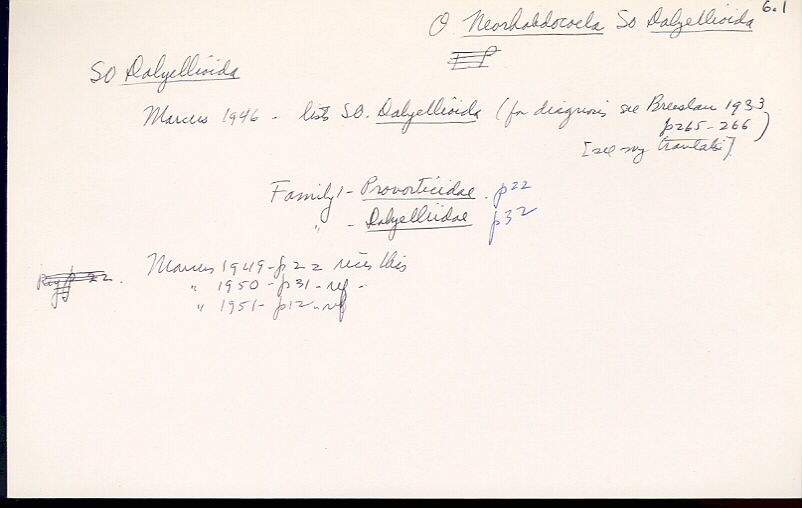 6.1
O Neorhabdocoela So Dalyellioida
SO Dalyellioida
Marcus 1946 - lists SO. Dalyellioida (for diagnosis see Bresslau 1933
p265-266)
[see my translatn]
Family 1 - Provorticidae . p22
" - Dalyelliidae p32
Marcus 1949 - p22 uses this
" 1950 - p31 - ref -
" 1951 - p12 - ref